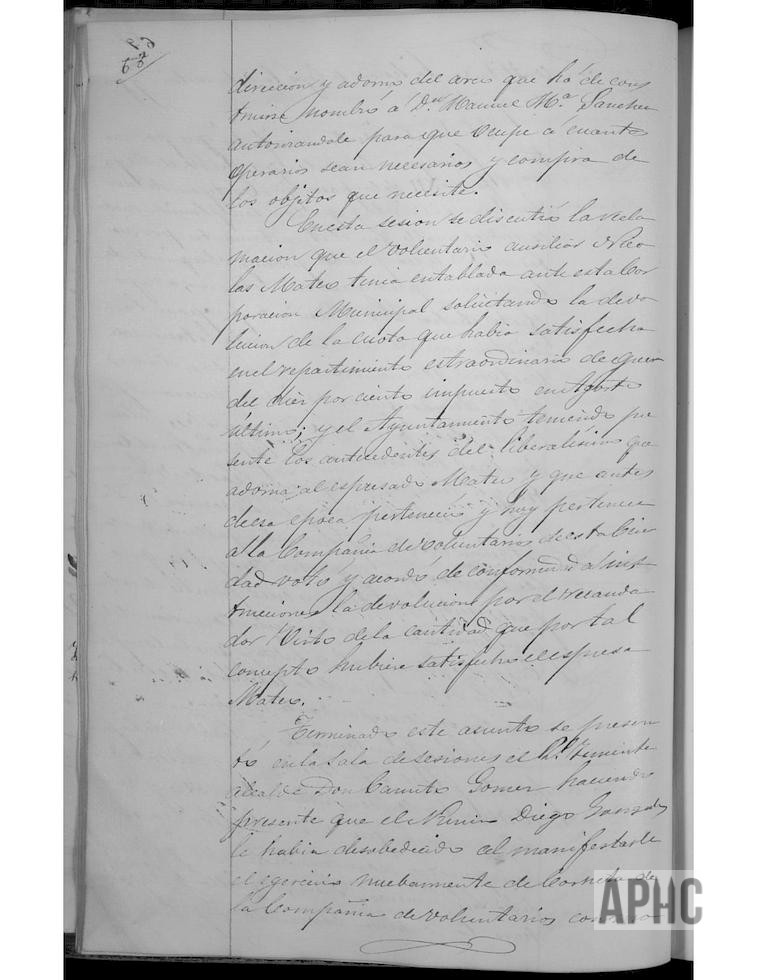 direccion y adorno del arco que há de cons
truirse nombró á Dⁿ Manuel Mª Sanchez
autorizandole para que ocupe á cuantos
operarios sean necesarios y compra de
los objetos que necesite.
En esta sesion se discutió la recla
macion que el voluntario auxiliar Nico
las Mateo tenia entablada ante esta Cor
poracion Municipal solicitando la devo
lucion de la cuota que habia satisfecho
en el repartimiento estraordinario de guerra
del diez por ciento impuesto en Agosto
último; y el Ayuntamiento teniendo pre
sente los antecedentes del liberalismo que
adorna al espresado Mateo y que antes
de esa epoca perteneció y hoy pertenece
a la Compañia de voluntarios de esta Ciu
dad votó y acordó de conformidad a ins
trucciones la devolucion por el recauda
dor de la cantidad que por tal
concepto hubiere satisfecho el espresa
Mateo.
Terminado este asunto se presen
tó en la Sala de sesiones el Sr. Teniente
alcalde Don Canuto Gomez haciendo
presente que el vecino Diego Gonzalez
le habia desobedecido al manifestarle
el egercicio nuebamente de Corneta de
la Compañia de voluntarios
APHC